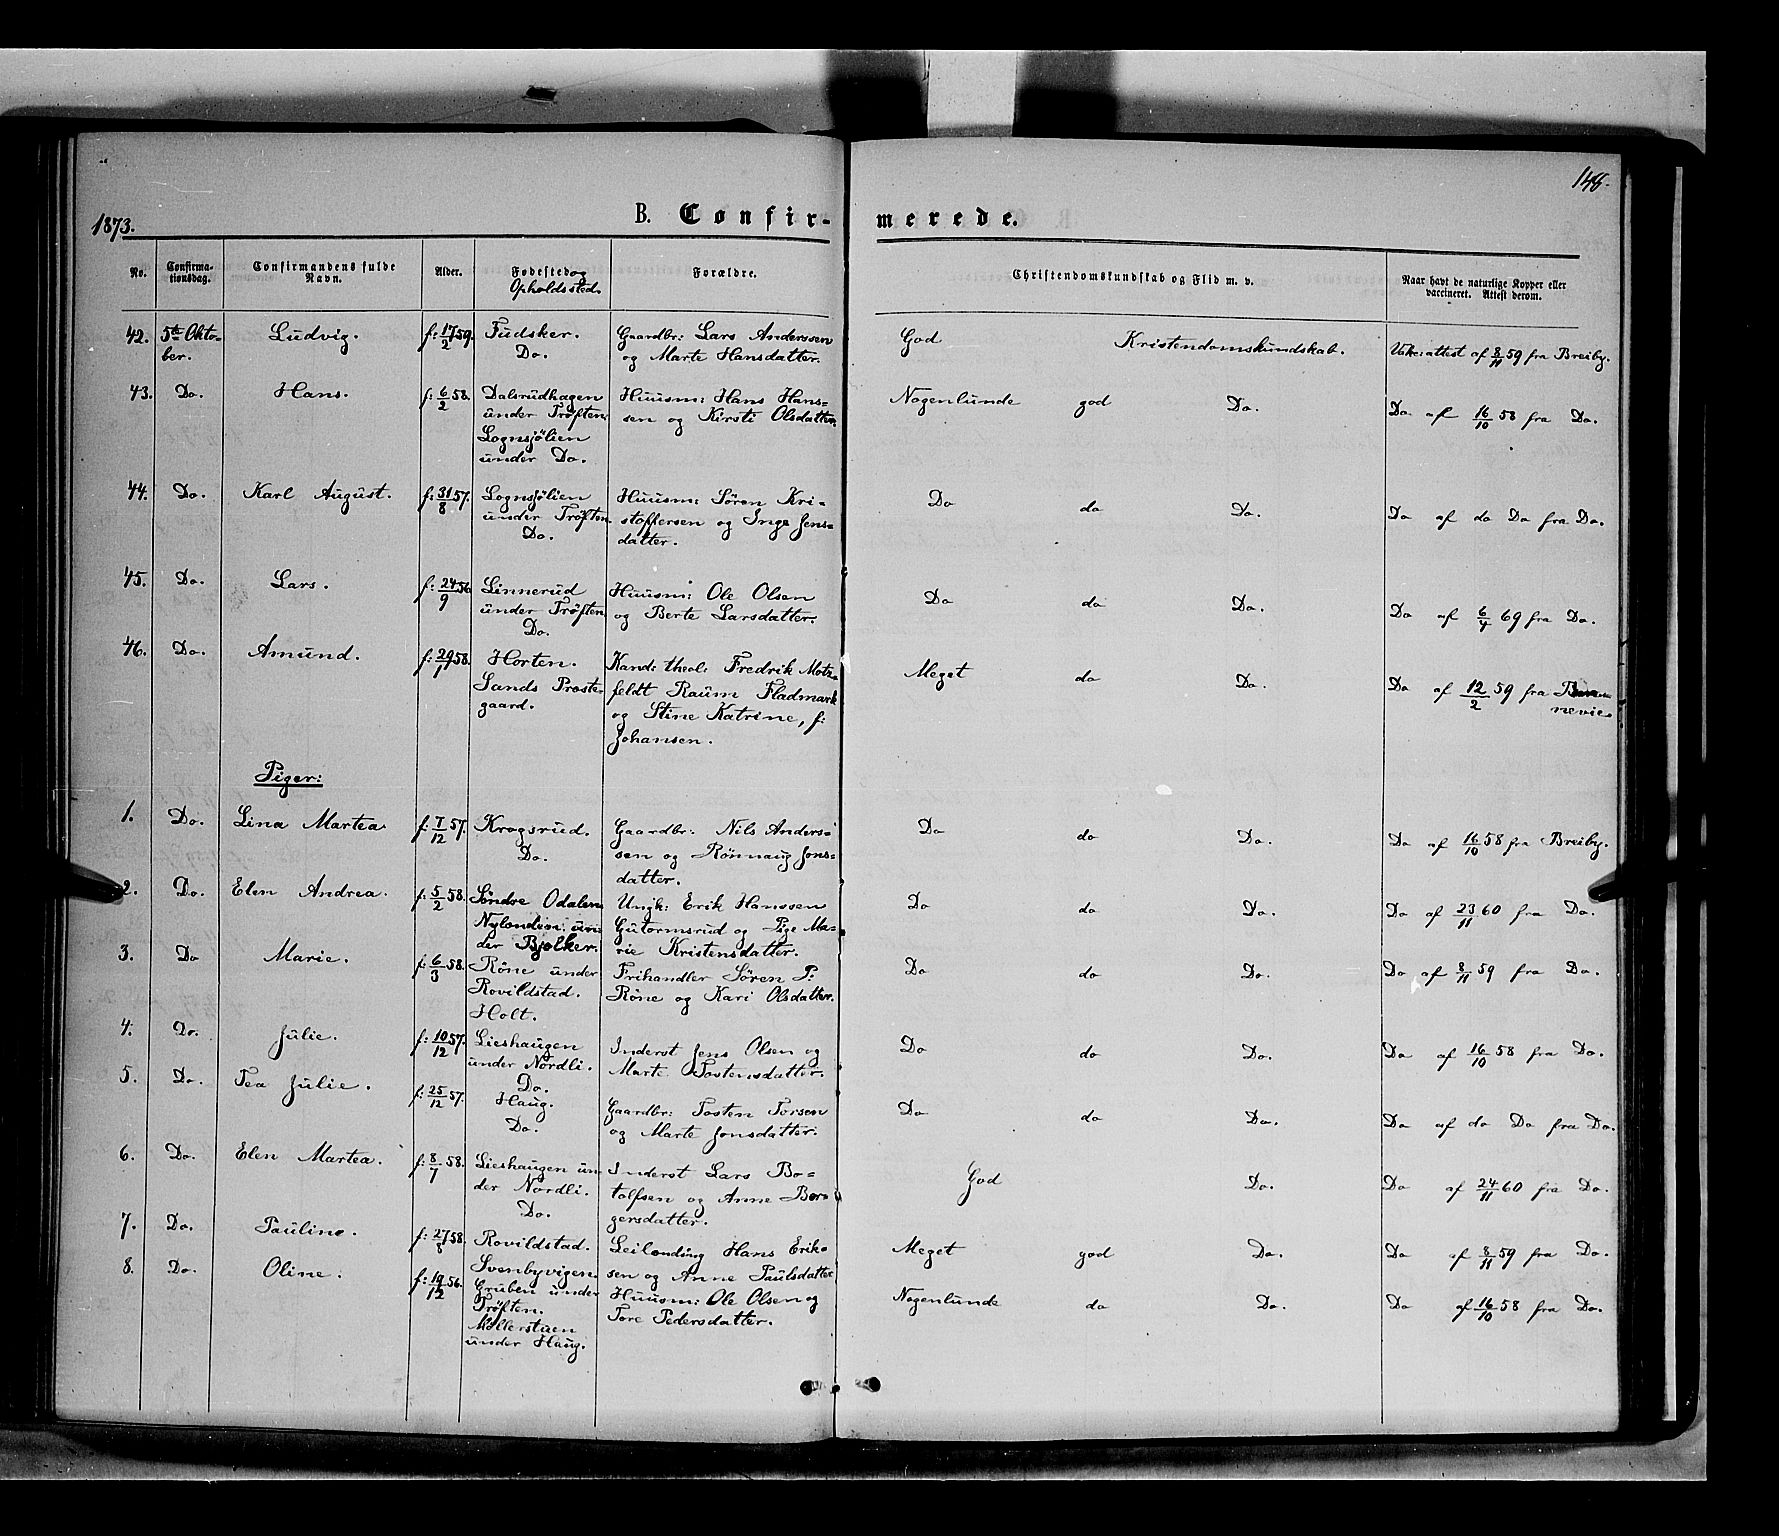 148.
1873.
B. Confir-
merede.
No.
Confirma-
tionsdag.
Confirmandens fulde
Navn.
Alder.
Fødested og
Opholdssted.
Forældre.
Christendomskundskab og Flid m. v.
Naar havt de naturlige Kopper eller
vaccineret. Attest derom.
42. 5te Okto-
ber.
Ludvig.
f: 17/2 59.
Fudsker.
Do.
Gaardbr: Lars Anderssen
og Marte Hansdatter.
God Kristendomskundskab.
af 8/11 59 fra Breiby.
43. Do. Hans.
f: 6/2 58.
Dalsrudhagen
under Trøften.
Lognsjölien
under Do.
Huusm: Hans Hans-
sen og Kirsti Olsdatter.
Nogenlunde god Do.
Do. af 16/10 58 fra Do.
44. Do. Karl August.
f: 31/8 57.
Lognsjölien
under Trøften.
Do.
Huusm: Sören Kri-
stoffersen og Inge Jens-
datter.
Do do Do.
Do af do Do fra Do.
45. Do. Lars.
f: 24/9 56
Linnerud
under Trøften
Do.
Huusm: Ole Olsen
og Berte Larsdatter.
Do do Do.
Do af 6/4 69 fra Do.
46. Do. Amund.
f: 29/1 58.
Horten.
Sands Præste-
gaard.
Kand: theol: Fredrik Motz-
feldt Raum Fladmark
og Stine Katrine, f:
Johansen.
Meget do Do.
Do af 12/2 59 fra
nevie
Piger:
1. Do. Lina Martea
f: 7/12 57.
Krogsrud.
Do.
Gaardbr: Nils Anders-
sen og Rönnaug Jons-
datter.
Do do Do.
Do af 16/10 58 fra Breiby.
2. Do. Elen Andrea.
f: 5/2 58.
Söndre Odalen
Nylandeie un-
der Bjölker.
Ungk: Erik Hanssen
Gutormsrud og Pige Ma-
rie Kristensdatter.
Do do Do.
Do af 23/11 60 fra Do.
3. Do Marie.
f: 6/3 58.
Röne under
Rovildstad.
Holt.
Frihandler Sören P:
Röne og Kari Olsdatter.
Do do Do.
Do af 8/11 59 fra Do.
4. Do. Julie.
f: 10/12 57.
Lieshaugen
under Nordli.
Do.
Inderst Jens Olsen og
Marte Tostensdatter.
Do do Do.
Do af 16/10 58 fra Do.
5. Do. Tea Julie.
f: 25/12 57.
Haug.
Do.
Gaardbr: Tosten Torsen
og Marte Jonsdatter.
Do do Do.
Do af do Do fra Do.
6. Do. Elen Martea.
f: 8/7 58.
Lieshaugen un-
der Nordli.
Do.
Inderst Lars Bo-
tolfsen og Anne Bør-
gersdatter.
God Do.
Do af 24/11 60 fra Do.
7. Do. Pauline.
f: 27/8 58.
Rovildstad.
Svenbyvigen.
Leilending Hans Erik-
sen og Anne Paulsdatter
Meget god Do.
Do af 8/11 59 fra Do.
8. Do. Oline.
f: 19/12 56.
Gruben under
Trøften.
Möllerstuen
under Haug.
Huusm: Ole Olsen og
Tore Pedersdatter.
Nogenlunde do Do.
Do af 16/10 58 fra Do.